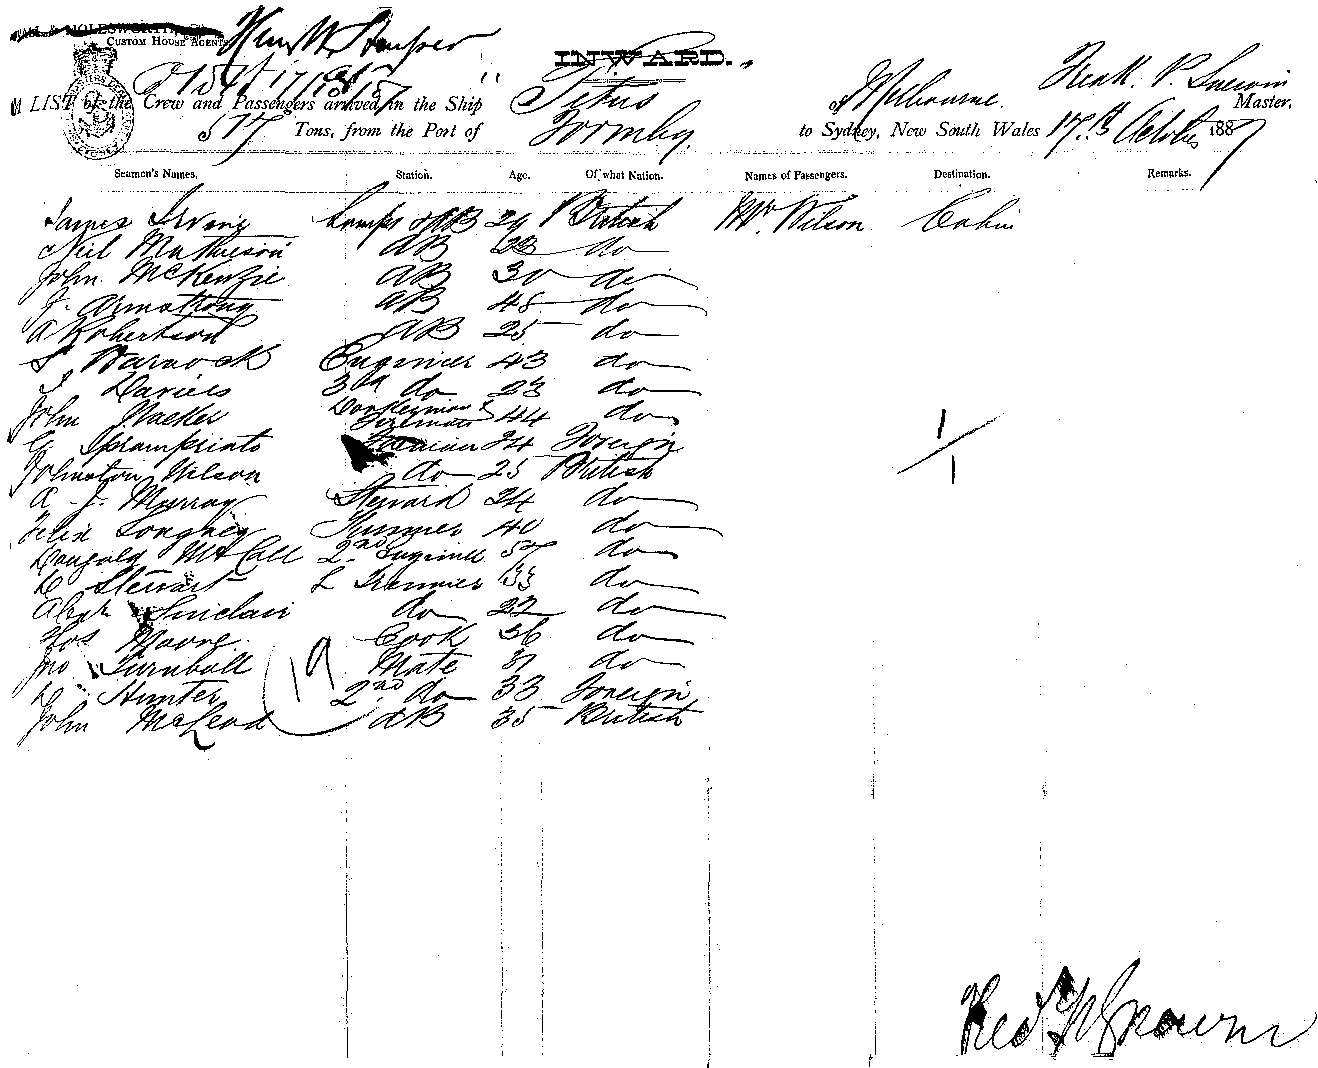 CUSTOM HOUSE AGENTS
INWARD.
LIST of the Crew and Passengers arrived in the Ship Titus of Melbourne. Master,
517 Tons, from the Port of Formby. to Sydney, New South Wales 17th October 1887
Seamen's Names. Station. Age. Of what Nation. Names of Passengers. Destination. Remarks.
James Irving Lamps & AB 29 British Mr. Wilson Cabin
Neil Mathieson AB 28 do
John McKenzie AB 30 do
J. Armstrong AB 48 do
A Robertson AB 25 do
Warnock Engineer 43 do
Davies 3rd do 23 do
John 44 do
24 Foreign
Johnston Wilson do 25 British
A. J. Murray Steward 24 do
Felix 40 do
Dougald McCall 2nd Engineer 57 do
D Stewart 33 do
Alexr Sinclair do 22 do
Thos Moore Cook 36 do
Jno Turnbull Mate 31 do
Hunter 2nd do 33 Foreign
John McLeod AB 35 British
19
1/1